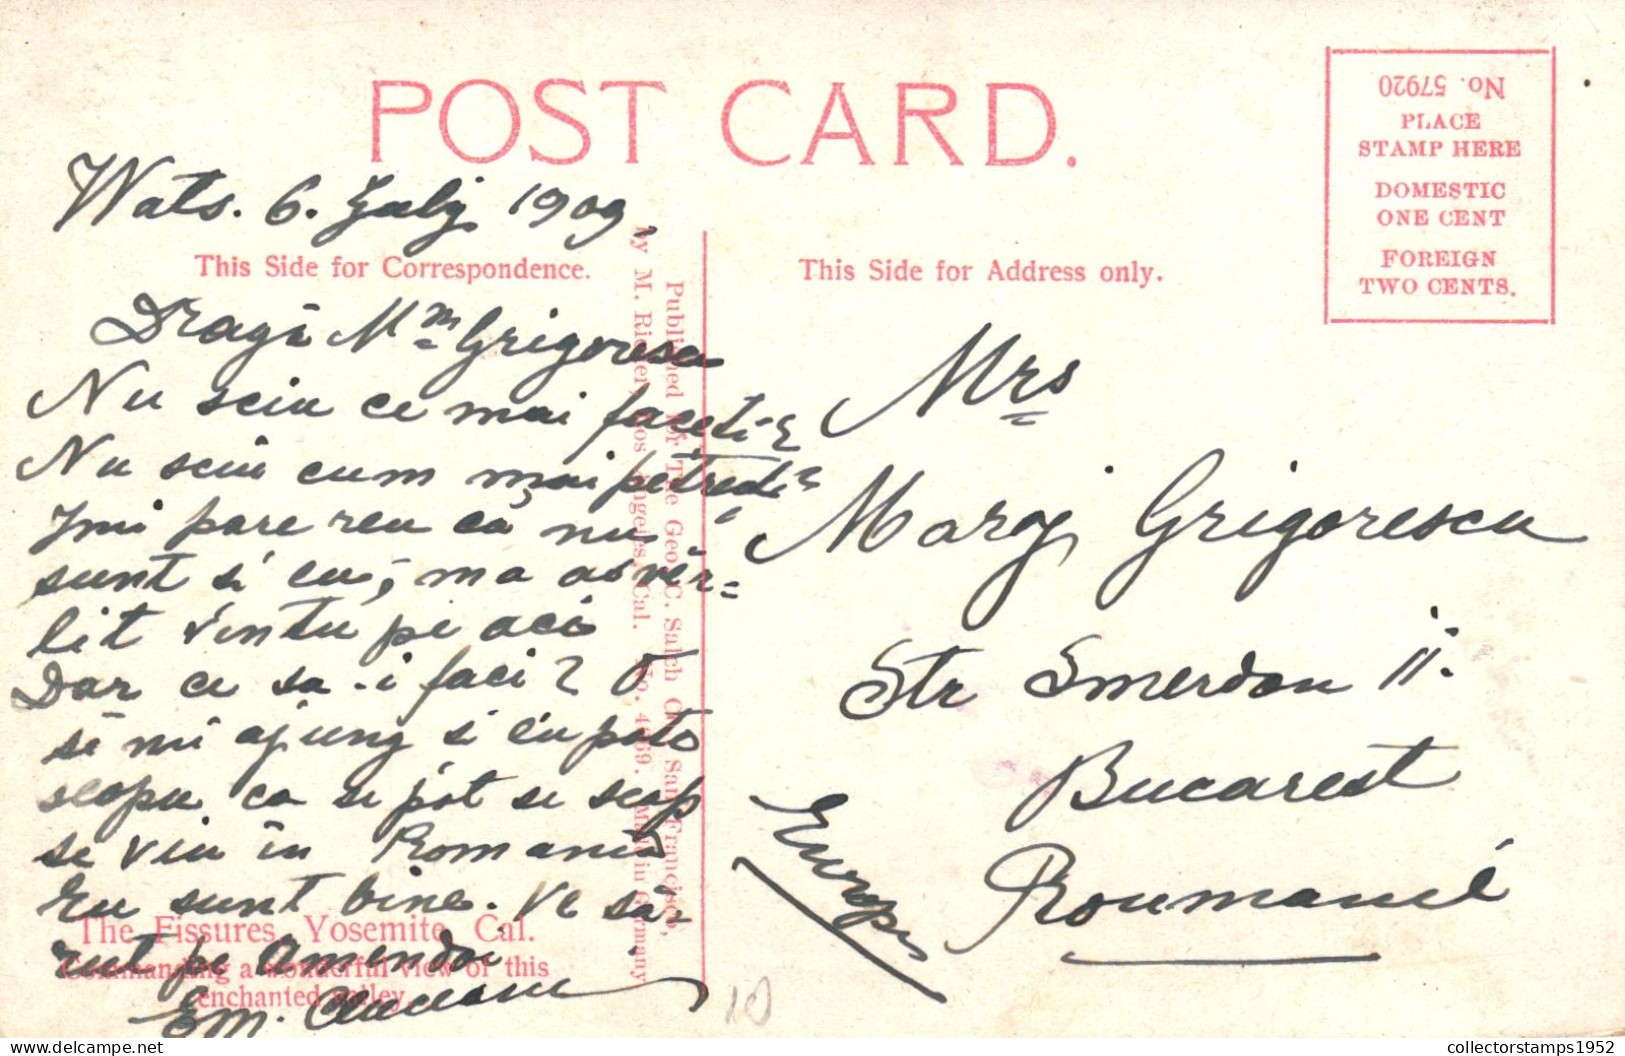 POST CARD.
No. 57920
PLACE
STAMP HERE
DOMESTIC
ONE CENT
FOREIGN
TWO CENTS.
Wats. 6. July 1909.
This Side for Correspondence.
This Side for Address only.
Dragă Mm Grigorescu
Nu sciu ce mai faceti
Nu sciu cum mai petreceti
Imi pare reu că nu
sunt si eu, m'a asvêr=
lit vêntu pe aci
Dar ce sa-i faci? O
sĕ mi ajung si eu
scopu ca se pot se scap
se viu în Romania
Eu sunt bine. Ve să
rut pe Amendoi
Em.
Mrs
Margi Grigorescu
Str Smerdan 11.
Bucarest
Europe
Roumanie
Published for The Geo. C. Salch Co. San Francisco,
by M. Rieder, Los Angeles, Cal. No. 4469. Made in Germany
The Fissures, Yosemite, Cal.
Commanding a wonderful view of this
enchanted valley.
10
collectorstamps1952